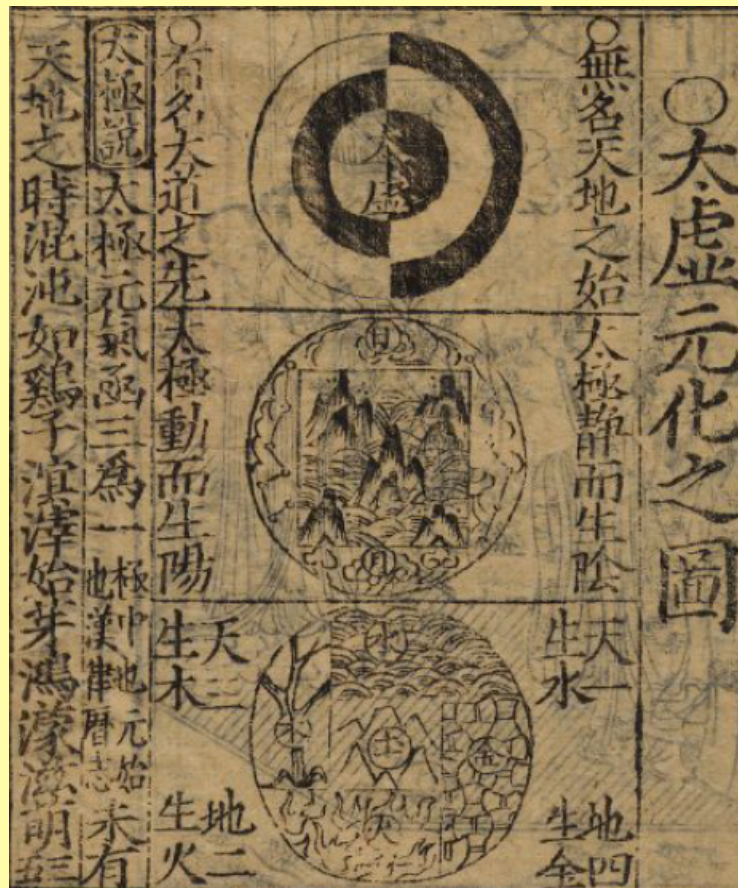 ○太虛元化之圖
○無名天地之始
太極静而生陰
天一
生水
地四
生金
太虛
日
月
水
木
土
金
火
○有名大道之先
太極動而生陽
天三
生木
地二
生火
太極說
太極元氣函三爲一
極中也元始
也漢律曆志
未有
天地之時混沌如鷄子溟涬始芽鴻濛滋萌